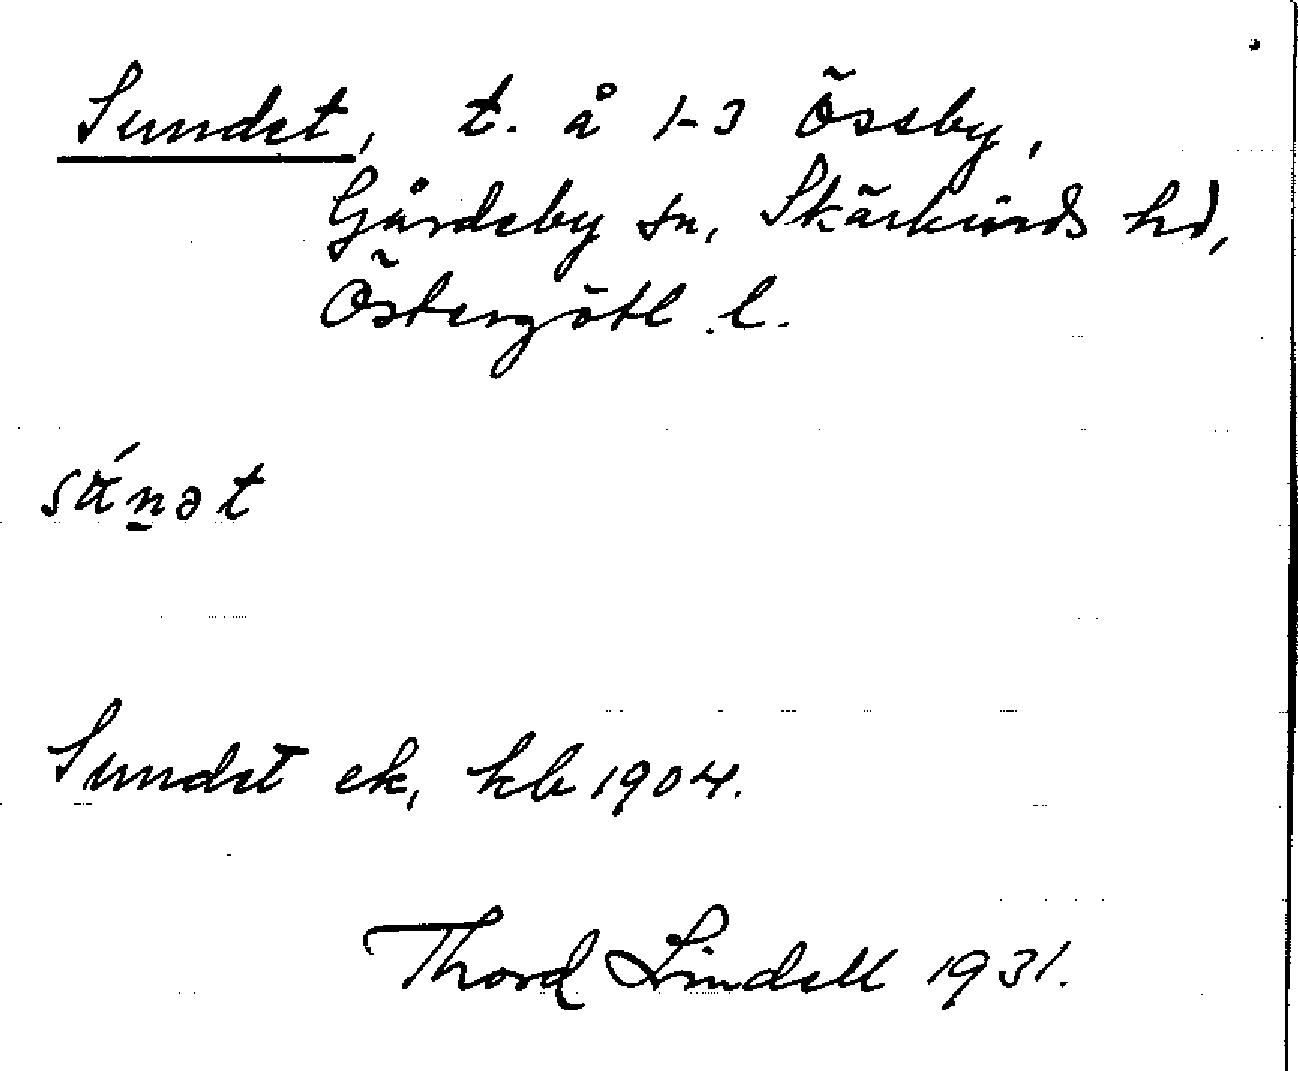 Sundet, t. å 1-3 Össby,
Gårdeby sn, Skärkinds hd,
Östergötl. l.
sánət
Sundet ek, kb 1904.
Thord Lindell 1931.